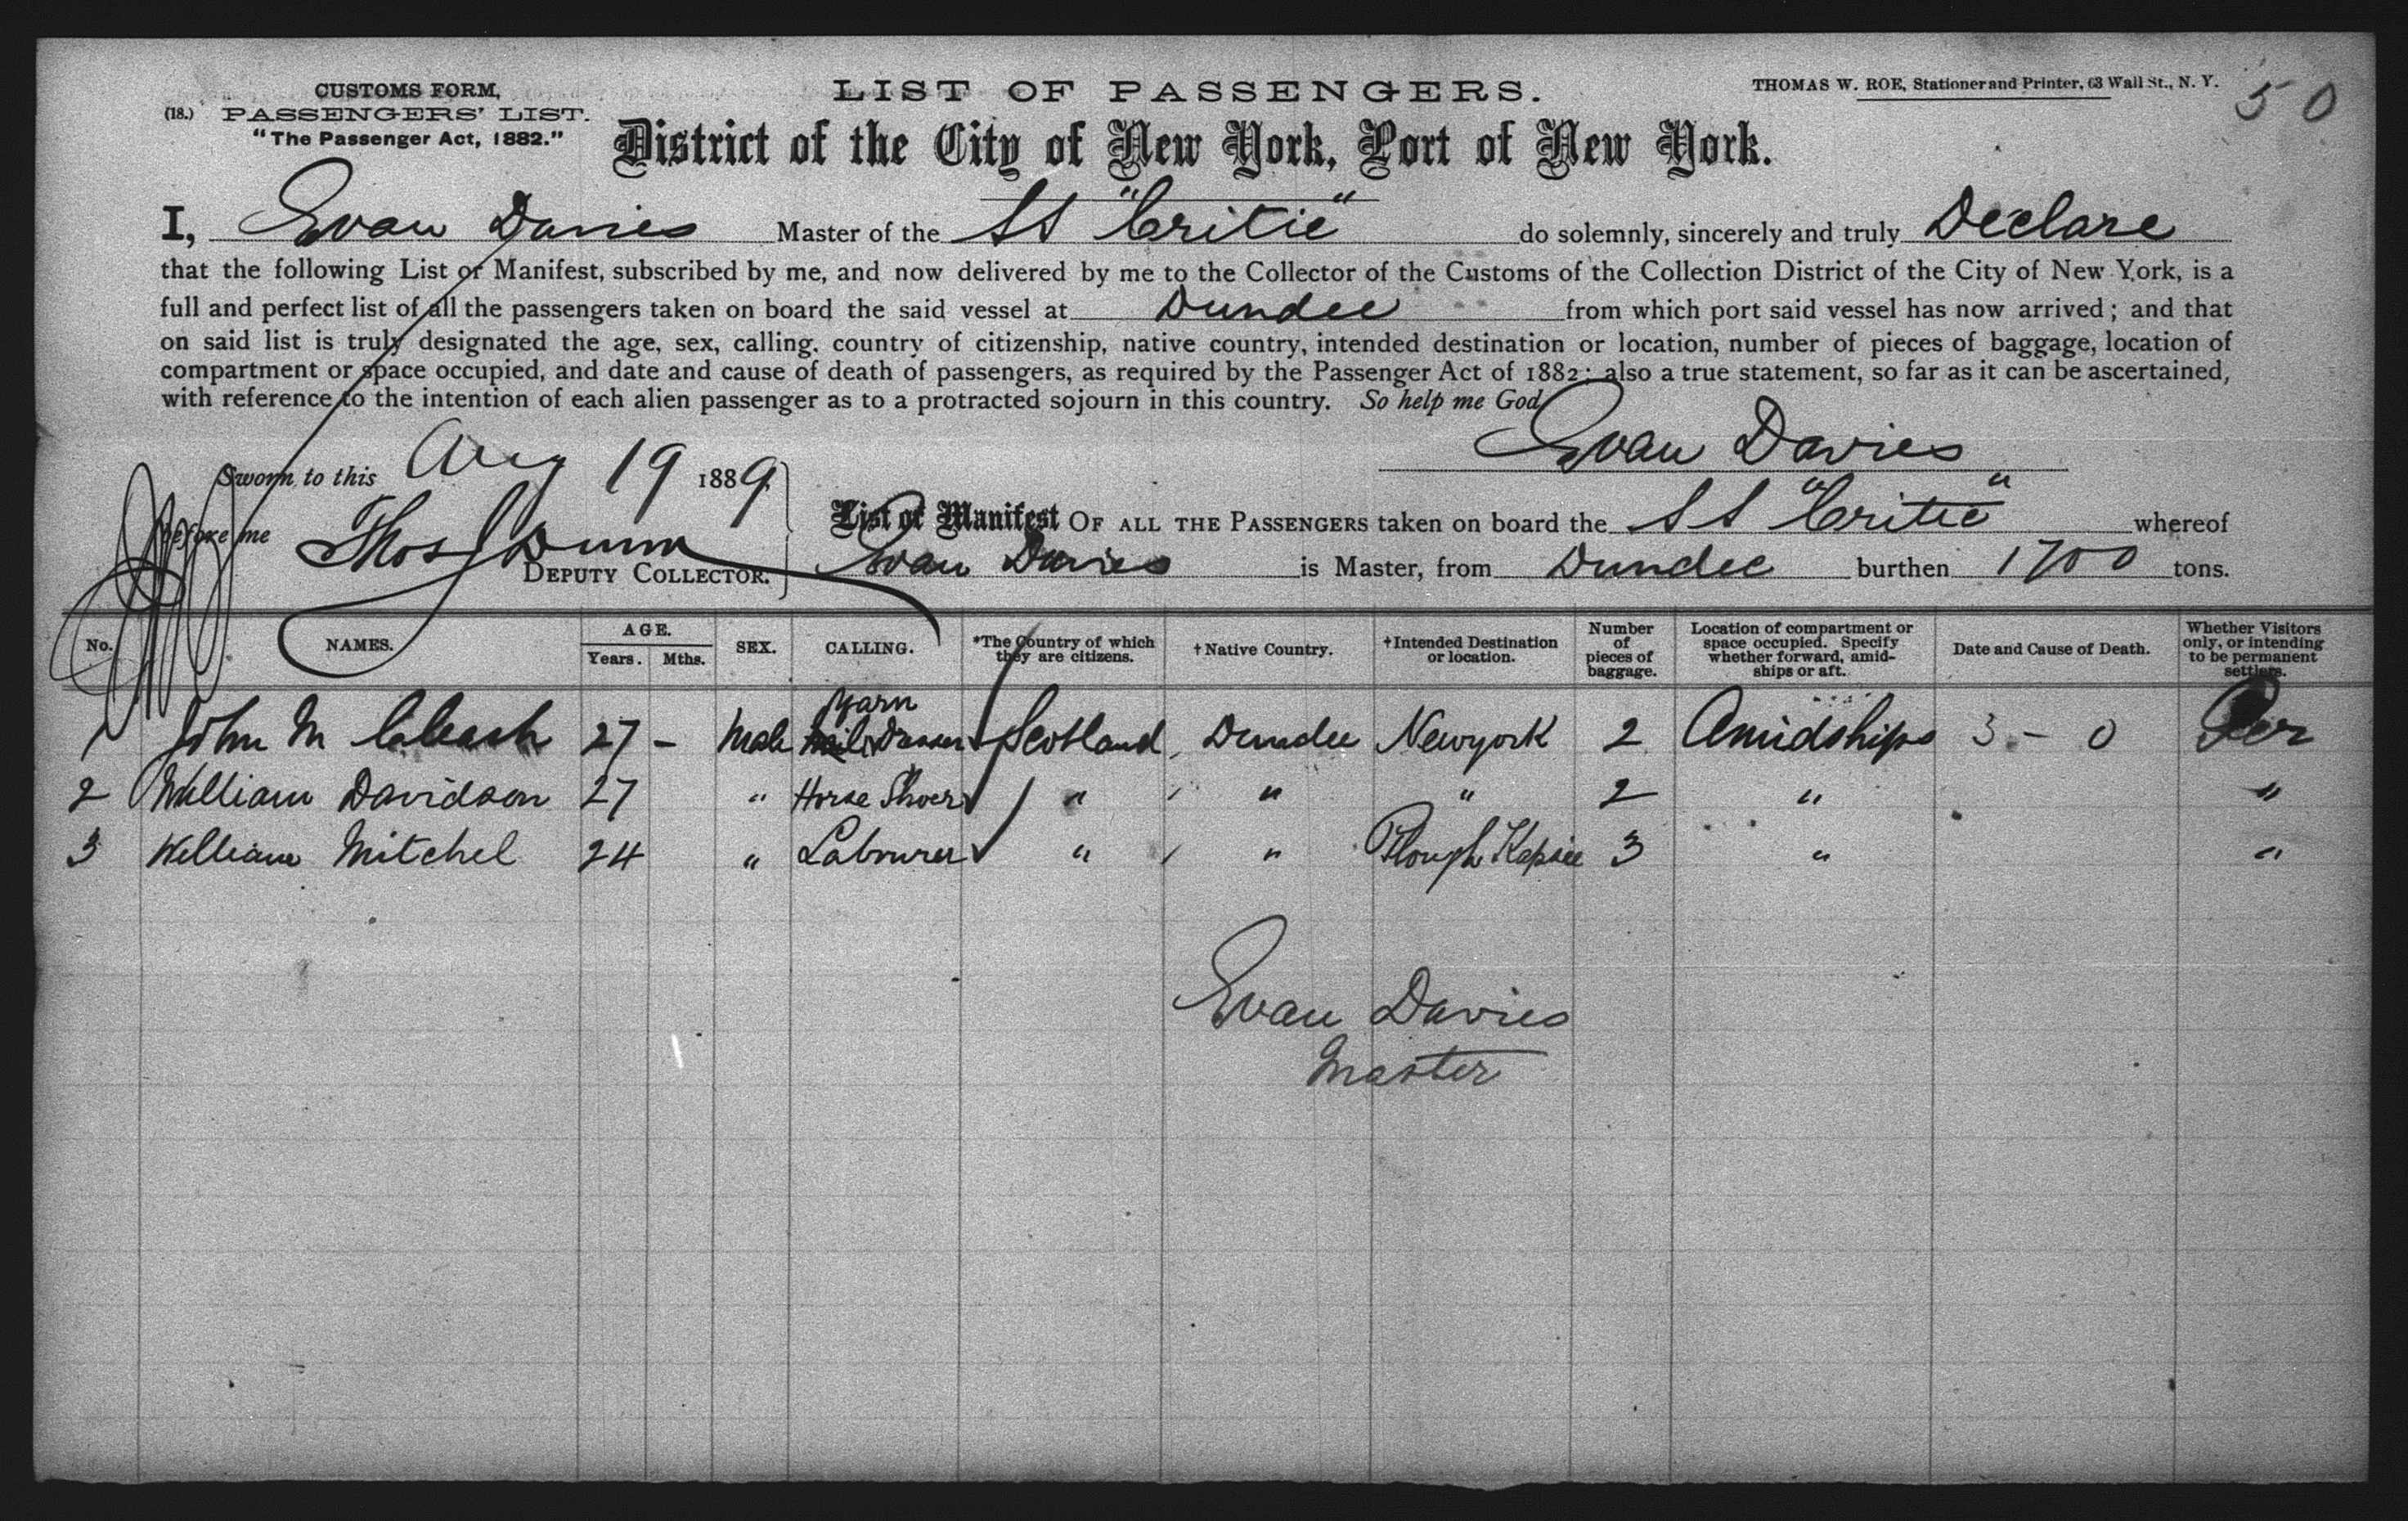 CUSTOMS FORM,
(18.) PASSENGERS' LIST.
"The Passenger Act, 1882."
LIST OF PASSENGERS.
THOMAS W. ROE, Stationer and Printer, 63 Wall St., N. Y.
50
District of the City of New York, Port of New York.
I, Evan Davies Master of the SS "Critic" do solemnly, sincerely and truly Declare
that the following List or Manifest, subscribed by me, and now delivered by me to the Collector of the Customs of the Collection District of the City of New York, is a
full and perfect list of all the passengers taken on board the said vessel at Dundee from which port said vessel has now arrived; and that
on said list is truly designated the age, sex, calling, country of citizenship, native country, intended destination or location, number of pieces of baggage, location of
compartment or space occupied, and date and cause of death of passengers, as required by the Passenger Act of 1882; also a true statement, so far as it can be ascertained,
with reference to the intention of each alien passenger as to a protracted sojourn in this country. So help me God
Evan Davies
Sworn to this Aug 19 1889
before me Thos Dunn
DEPUTY COLLECTOR.
List or Manifest OF ALL THE PASSENGERS taken on board the SS "Critic" whereof
Evan Davies is Master, from Dundee burthen 1700 tons.
No. NAMES. AGE. Years. Mths. SEX. CALLING. *The Country of which they are citizens. †Native Country. †Intended Destination or location. Number of pieces of baggage. Location of compartment or space occupied. Specify whether forward, amidships or aft. Date and Cause of Death. Whether Visitors only, or intending to be permanent settlers.
1 John M 27 - Male Yarn Scotland Dundee Newyork 2 Amidships 3 - 0 Per
2 William Davidson 27 " Horse Shoer " " " 2 " "
3 William Mitchel 24 " Labourer " " 3 " "
Evan Davies
Master